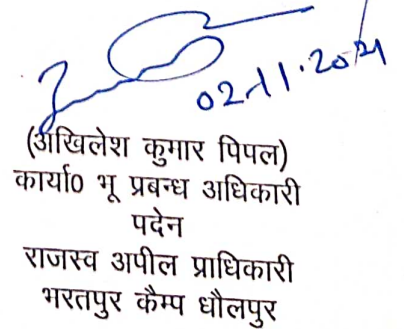 02-11-2021
(अखिलेश कुमार पिपल)
कार्या0 भू प्रबन्ध अधिकारी
पदेन
राजस्व अपील प्राधिकारी
भरतपुर कैम्प धौलपुर